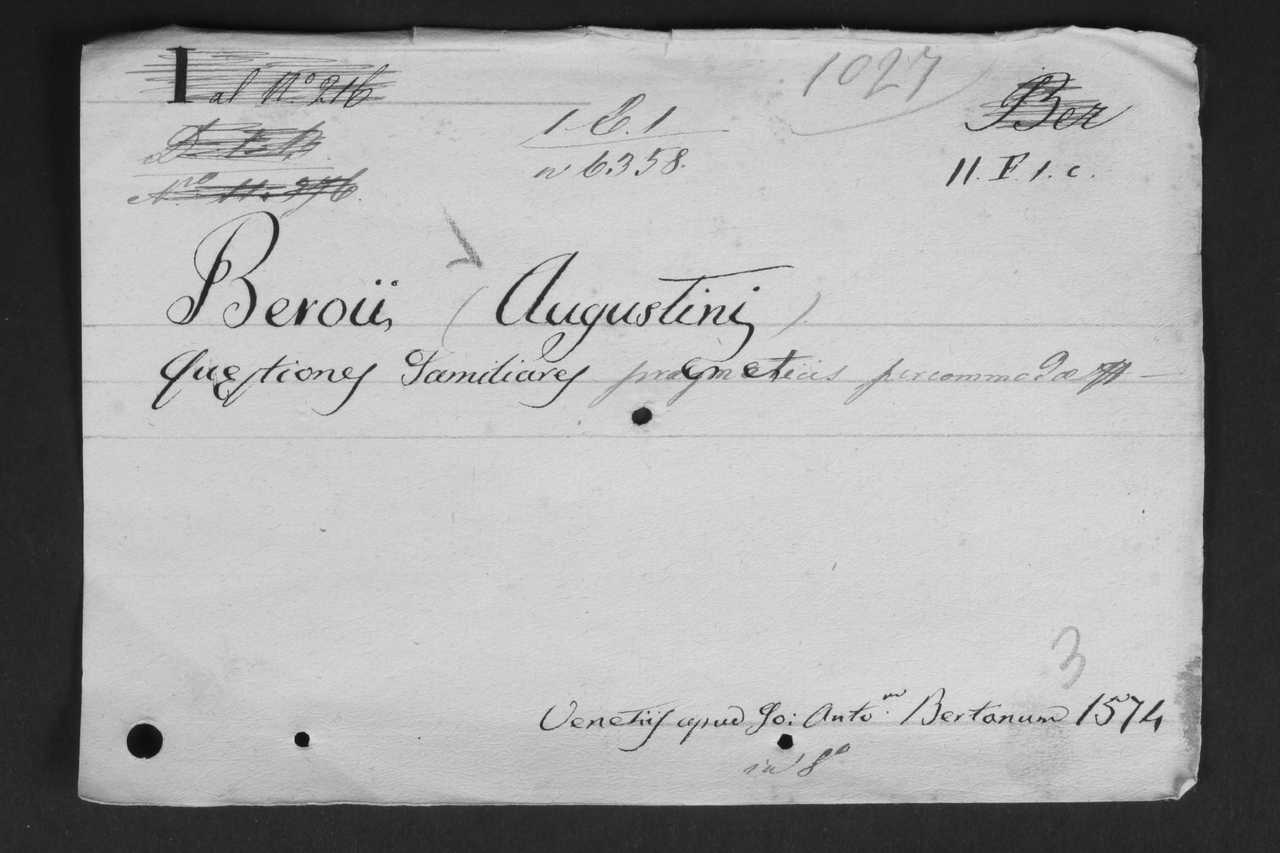 I al Nº 216
1027
Ber
1 E. 1
n 6358.
11. F. 1. c.
Beroii, (Augustini)
Quęstiones Familiares pragmaticis percommodæ —
3
Venetiis apud Jo: Anto.m Bertanum 1574
in 8º